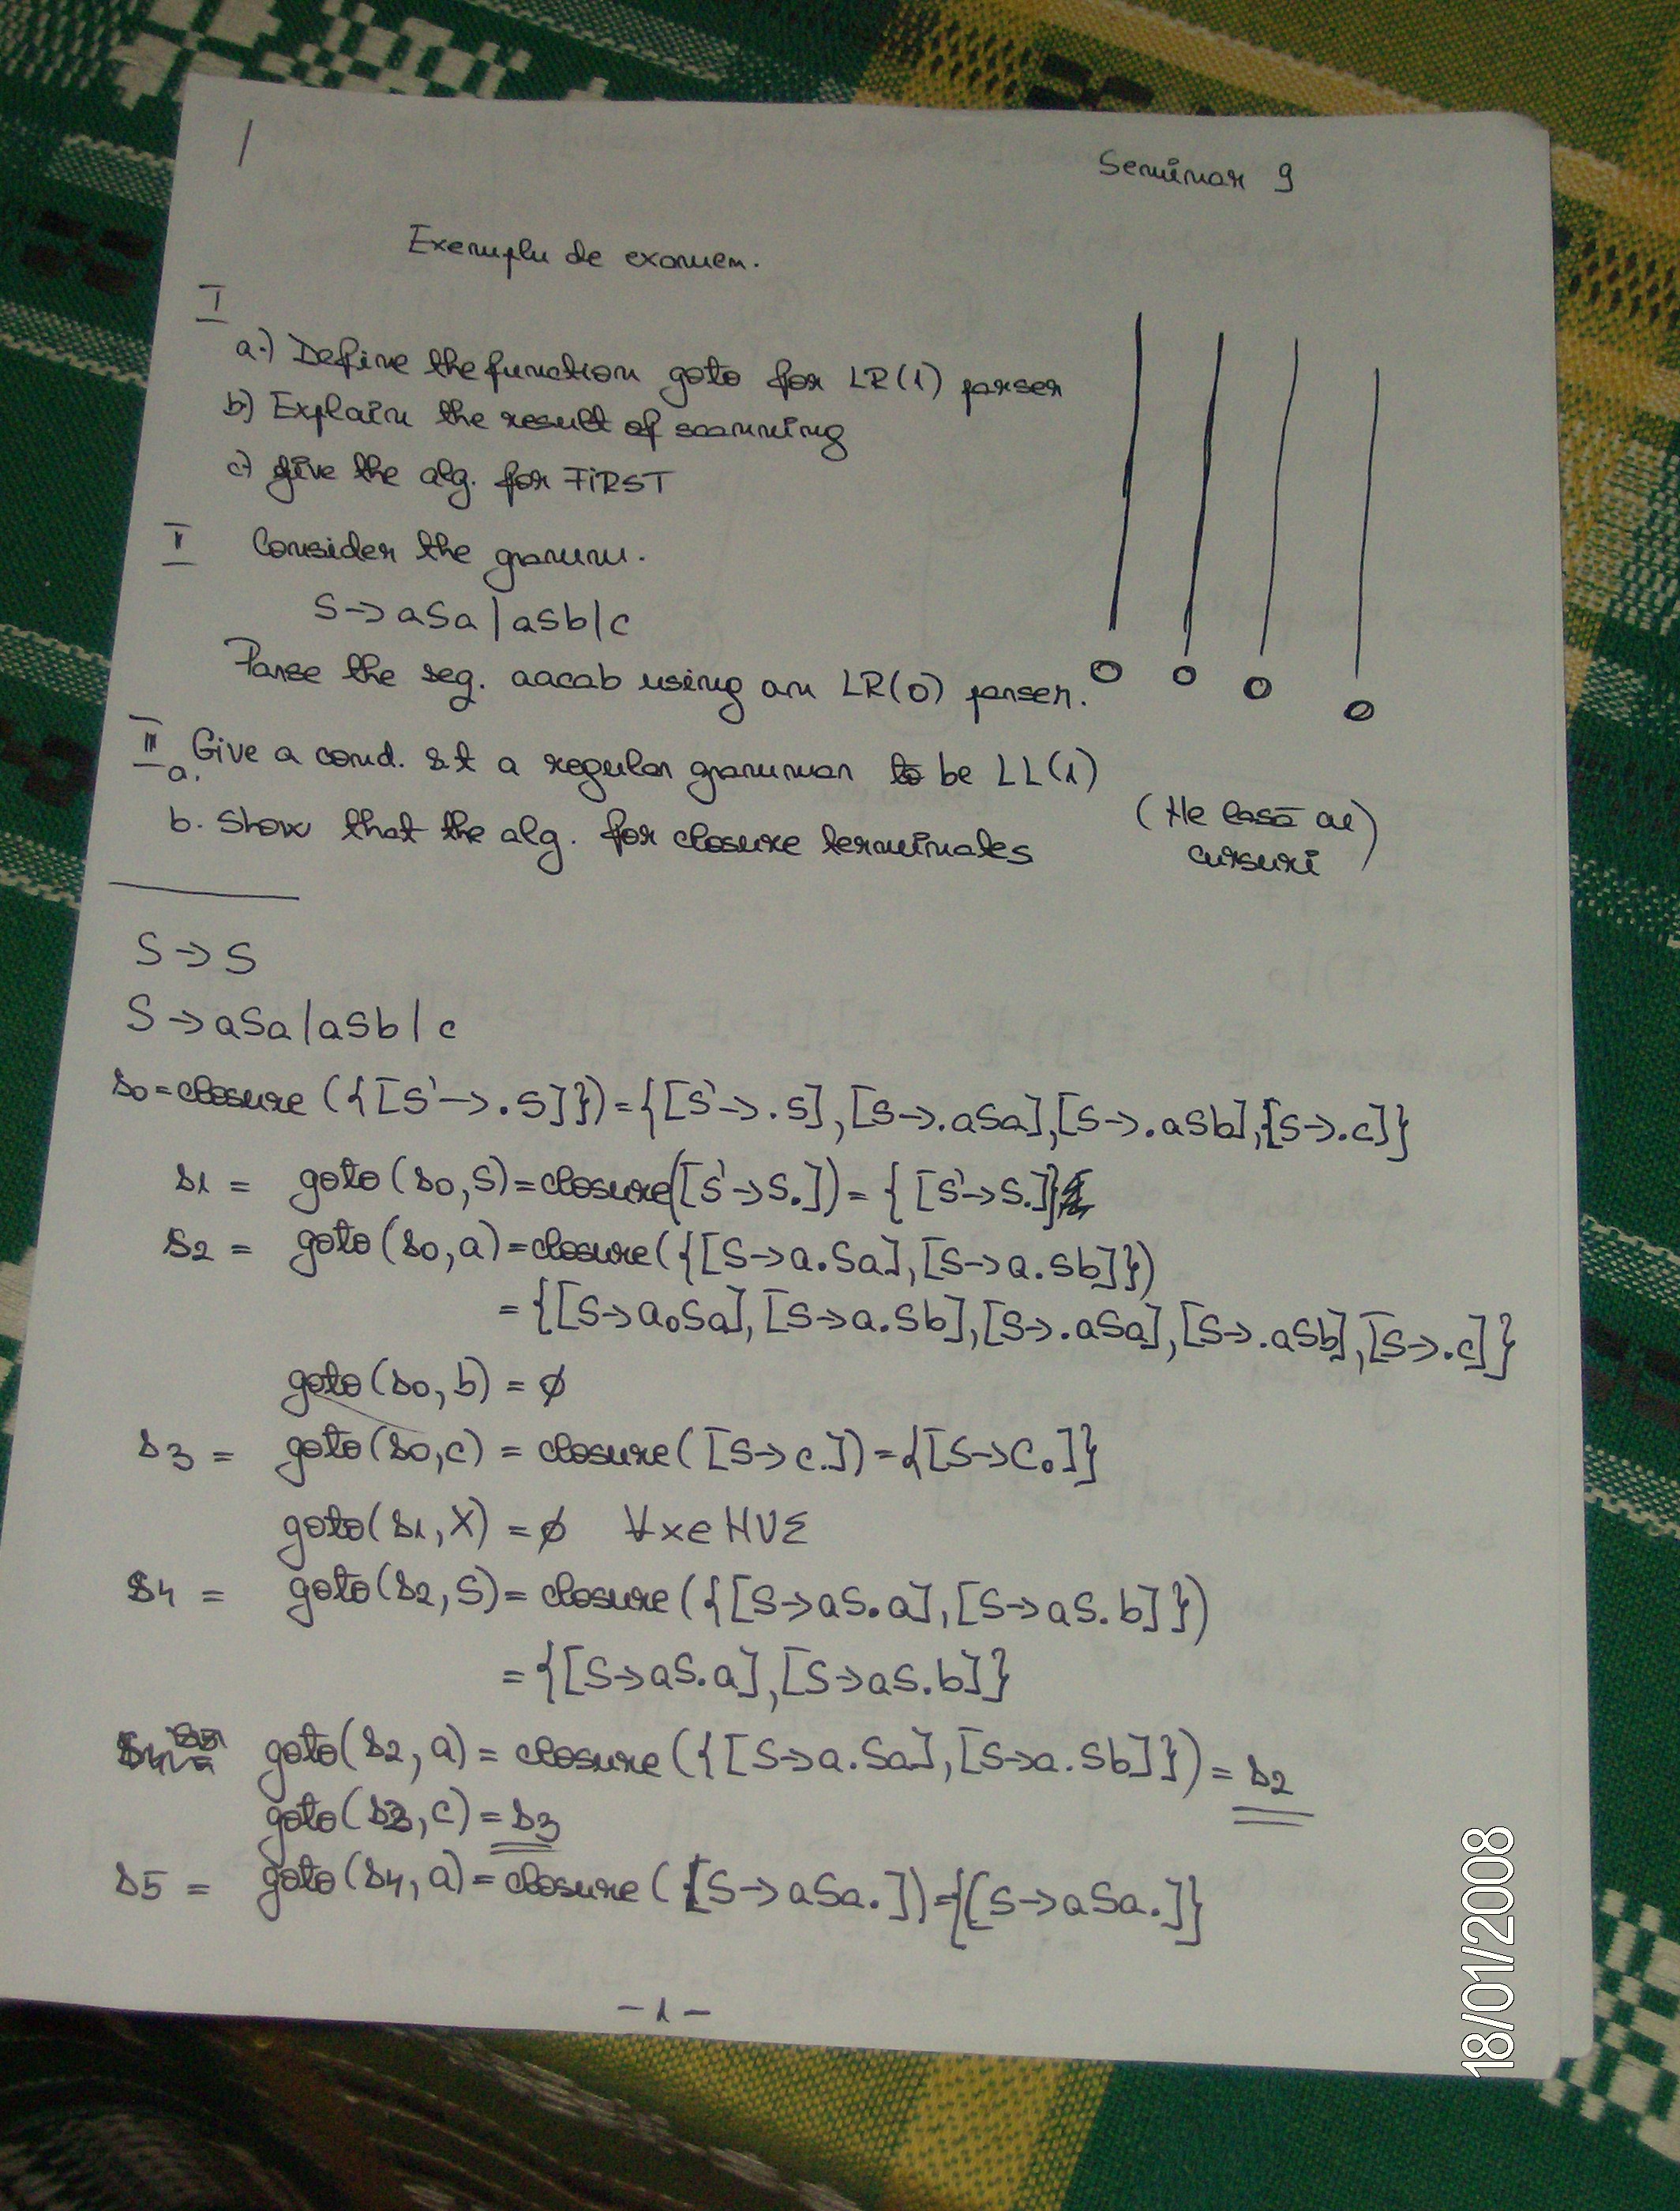 /
Seminar 9
Exemplu de examen.
I
a.) Define the function goto for LR(1) parser
b) Explain the result of scanning
c) give the alg. for FiRST
II Consider the gramm.
S → aSa | aSb | c
Parse the seq. aacab using an LR(0) parser.
III a. Give a cond. s.t a regular grammar to be LL(1)
b. Show that the alg. for closure terminates
(Ne lasă cu cursuri)
S → S
S → aSa | aSb | c
s0 = closure ({[S' → .S]}) = {[S' → .S], [S → .aSa], [S → .aSb], [S → .c]}
s1 = goto(s0, S) = closure([S' → S.]) = {[S' → S.]}
s2 = goto(s0, a) = closure({[S → a.Sa], [S → a.Sb]})
= {[S → a.Sa], [S → a.Sb], [S → .aSa], [S → .aSb], [S → .c]}
goto(s0, b) = ∅
s3 = goto(s0, c) = closure([S → c.]) = {[S → c.]}
goto(s1, X) = ∅ ∀x∈N∪Σ
s4 = goto(s2, S) = closure({[S → aS.a], [S → aS.b]})
= {[S → aS.a], [S → aS.b]}
goto(s2, a) = closure({[S → a.Sa], [S → a.Sb]}) = s2
goto(s2, c) = s3
s5 = goto(s4, a) = closure([S → aSa.]) = {[S → aSa.]}
- 1 -
18/01/2008